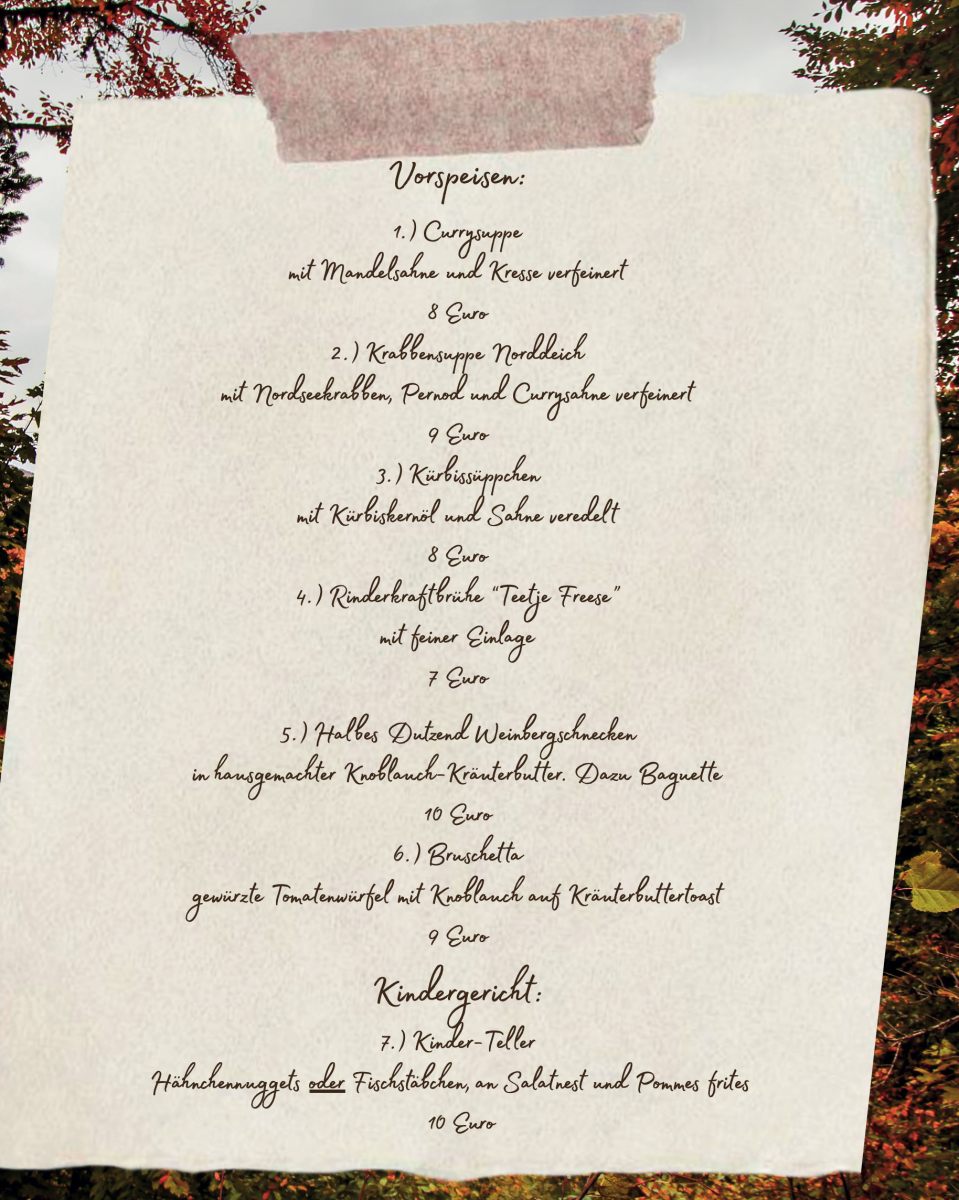 Vorspeisen:
1.) Currysuppe
mit Mandelsahne und Kresse verfeinert
8 Euro
2.) Krabbensuppe Norddeich
mit Nordseekrabben, Pernod und Currysahne verfeinert
9 Euro
3.) Kürbissüppchen
mit Kürbiskernöl und Sahne veredelt
8 Euro
4.) Rinderkraftbrühe “Teetje Freese”
mit feiner Einlage
7 Euro
5.) Halbes Dutzend Weinbergschnecken
in hausgemachter Knoblauch-Kräuterbutter. Dazu Baguette
10 Euro
6.) Bruschetta
gewürzte Tomatenwürfel mit Knoblauch auf Kräuterbuttertoast
9 Euro
Kindergericht:
7.) Kinder-Teller
Hähnchennuggets oder Fischstäbchen, an Salatnest und Pommes frites
10 Euro